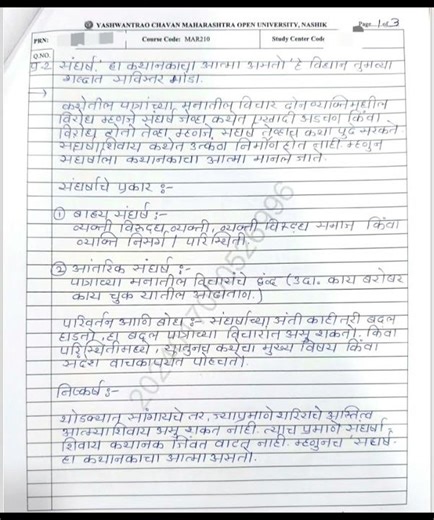 YASHWANTRAO CHAVAN MAHARASHTRA OPEN UNIVERSITY, NASHIK
Page 1 of 3
PRN:
Course Code: MAR210
Study Center Code
Q.NO.
प्र.2 संघर्ष. 'हा कथानकाचा आत्मा असतो' हे विधान तुमच्या
शब्दात सविस्तर मांडा.
→
कथेतील पात्रांच्या, मनातील विचार दोन व्यक्तिमधील
विरोध म्हणजे संघर्ष जेव्हा कथेत एखादी अडचण किंवा
विरोध होतो तेव्हा म्हणजे, संघर्ष तेव्हाच कथा पुढे सरकते
संघर्षाशिवाय कथेत उत्कंठा निर्माण होत नाही. म्हणून
संघर्षाला कथानकाचा आत्मा मानले जाते.
संघर्षाचे प्रकार :-
① बाह्य संघर्ष :-
व्यक्ती विरुद्ध व्यक्ती, व्यक्ती विरुद्ध समाज किंवा
व्यक्ति निसर्ग / परिस्थिती.
② आंतरिक संघर्ष :-
पात्राच्या मनातील विचारांचे द्वंद्व (उदा. काय बरोबर
काय चुक यातील ओढाताण.)
परिवर्तन आणि बोध :- संघर्षाच्या अंती काहीतरी बदल
घडतो, हा बदल पात्राच्या विचारात असू शकतो. किंवा
परिस्थितीमध्ये, यातुनच कथेचा मुख्य विषय किंवा
संदेश वाचकापर्यंत पोहचतो.
निष्कर्ष :-
थोडक्यात सांगायचे तर, ज्याप्रमाणे शरिराचे अस्तित्व
आत्म्याशिवाय असू शकत नाही. त्याच प्रमाणे संघर्षा
शिवाय कथानक जिवंत वाटत नाही. म्हणुनच 'संघर्ष.
हा कथानकाचा आत्मा असतो.